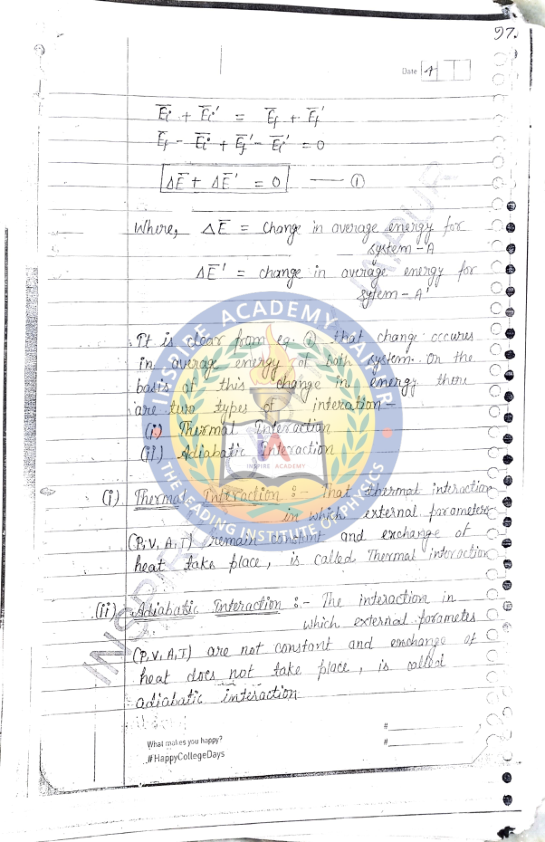 97.
Date 4
Ēi + Ēi' = Ēf + Ēf'
Ēf - Ēi + Ēf' - Ēi' = 0
ΔĒ + ΔĒ' = 0 —— ①
Where, ΔĒ = change in average energy for
system - A
ΔĒ' = change in average energy for
sytem - A'
It is clear from eq. ① that change occures
in average energy of both system. On the
basis of this change in energy there
are two types of interation-
(i) Thermal Interaction
(ii) Adiabatic Interaction
(i) Thermal Interaction :- That thermal interaction
in which external parameters
(P, V, A, T) remain constant and exchange of
heat take place, is called Thermal interaction
(ii) Adiabatic Interaction :- The interaction in
which external parametes
(P, V, A, T) are not constant and exchange of
heat does not take place, is called
adiabatic interaction
What makes you happy?
#HappyCollegeDays
#
#
INSPIRE ACADEMY JAIPUR
INSPIRE ACADEMY
THE LEADING INSTITUTE OF PHYSICS